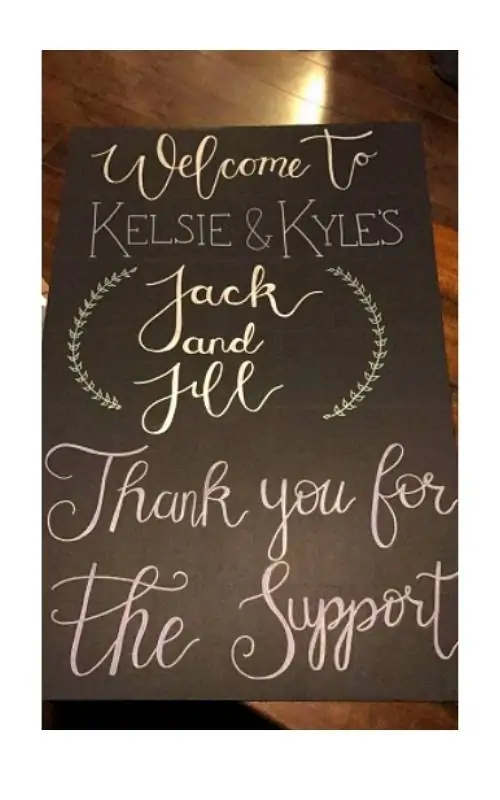 Welcome To
KELSIE & KYLE'S
Jack
and
Jill
Thank you for
the Support